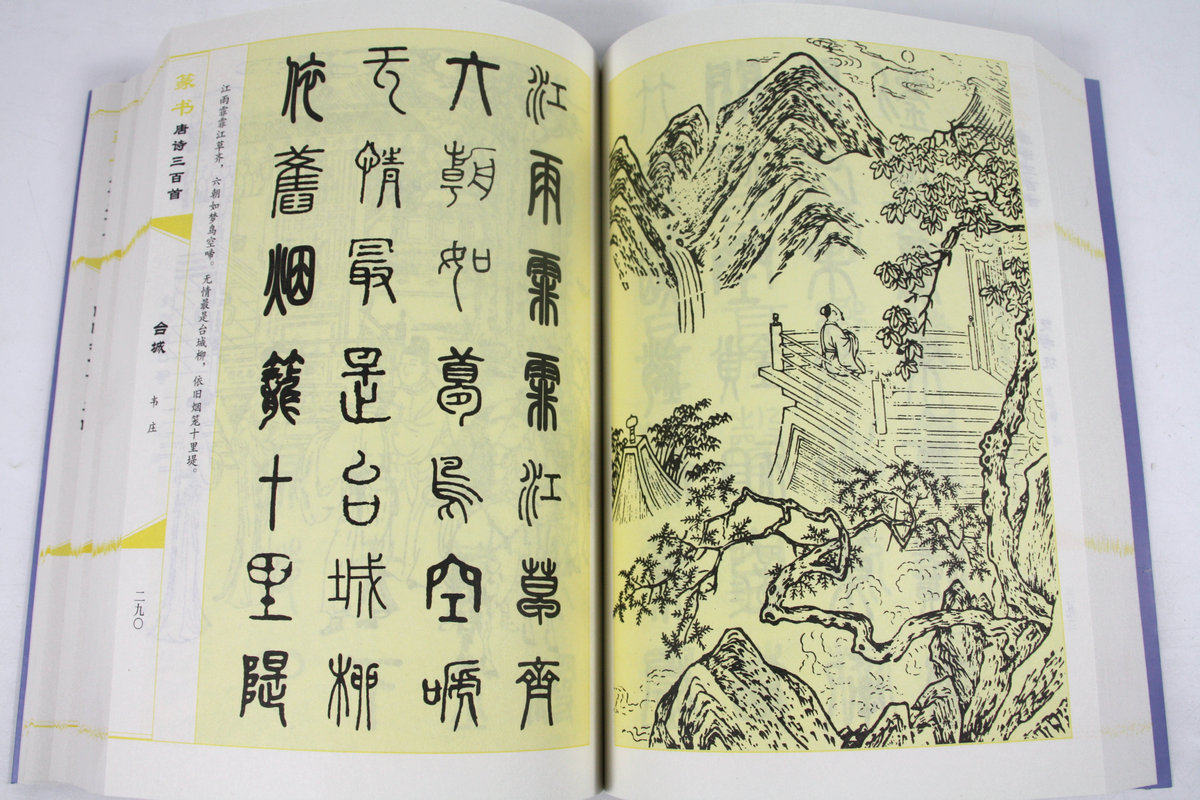 江雨霏霏江草齊
六朝如夢鳥空嗁
无情最是台城柳
依舊烟籠十里隄
江雨霏霏江草齐,六朝如梦鸟空啼。无情最是台城柳,依旧烟笼十里堤。
篆书 唐诗三百首
台城 韦庄
二九〇